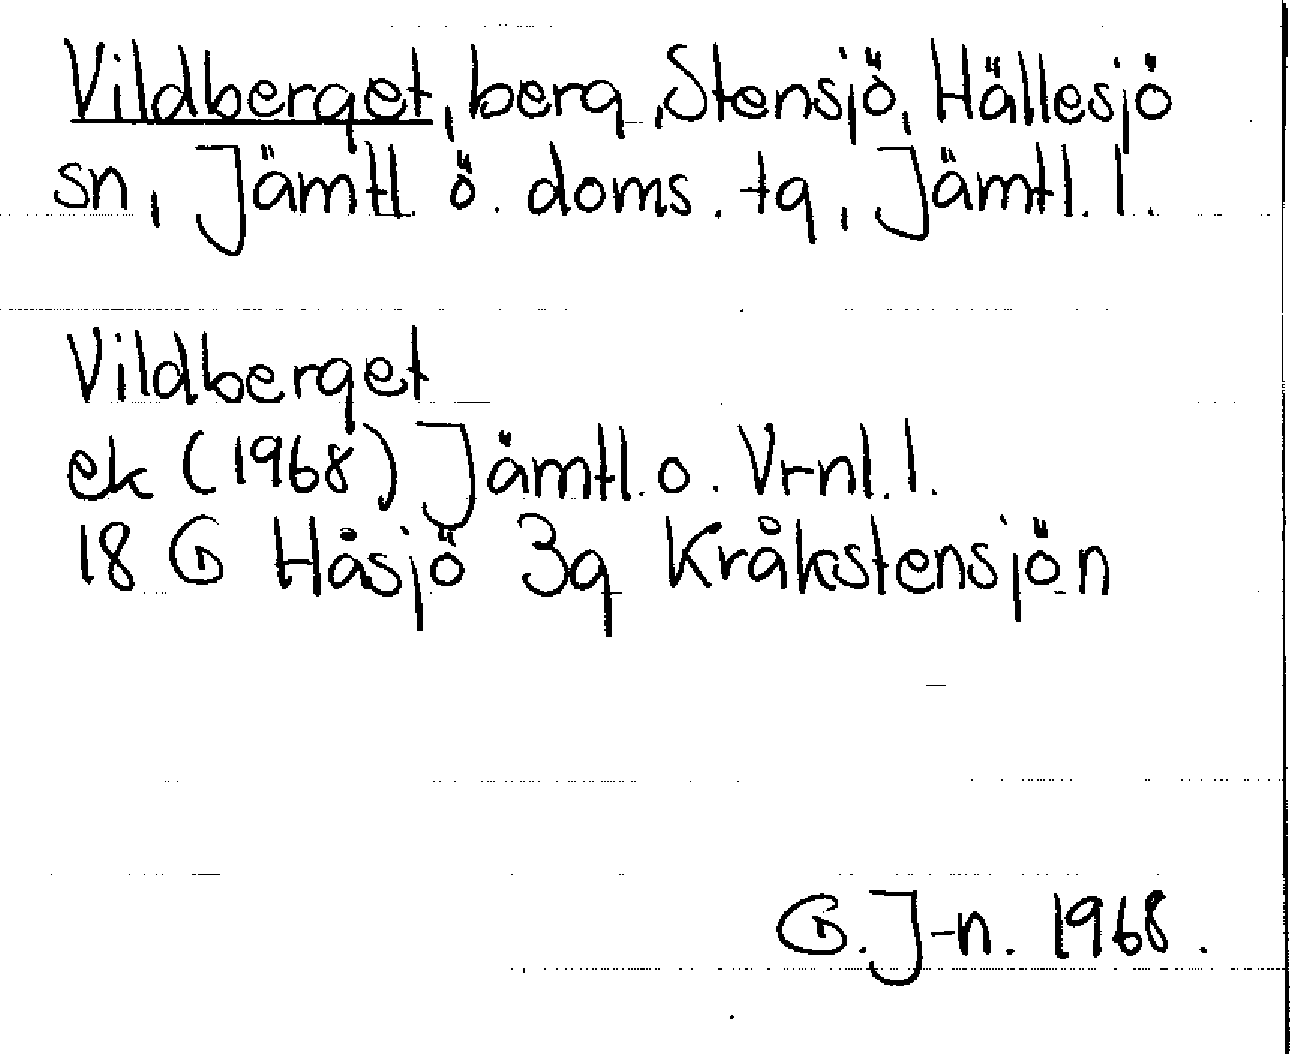 Vildberget, berg, Stensjö, Hällesjö
sn, Jämtl ö. doms. tg, Jämtl. l.
Vildberget
ek (1968) Jämtl. o. Vrnl. l.
18 G Håsjö 3g Kråkstensjön
G. J-n. 1968.